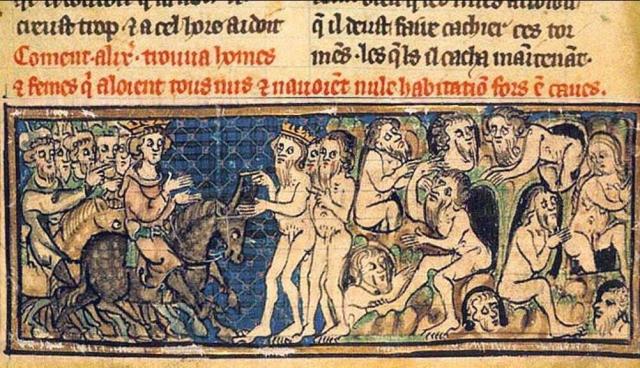 creust trop ⁊ a cel hore ardoit
q̃ il deust faire cachier ces tor
mẽs · les q̃ls il cacha maĩtenãt ·
Coment · alix̃ · trouua homes
⁊ femes q̃ aloient tous nus ⁊ nauoiẽt nule habitatiõ fors ẽ caues .